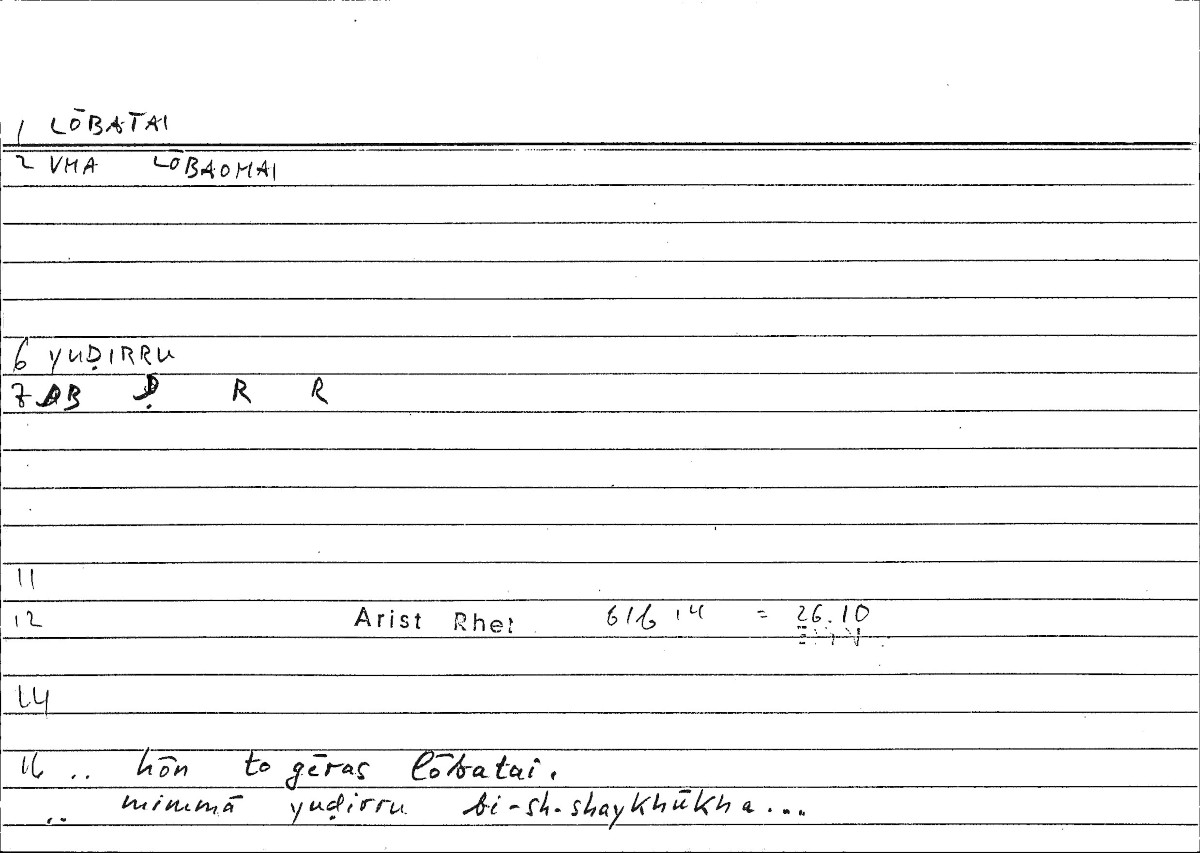 1 LŌBATAI
2 VMA LŌBAOMAI
6 YUḌIRRU
7 AB Ḍ R R
11
12 Arist Rhet 61b 14 = 26.10
14
16 .. hōn to gēras lōbatai.
.. mimmā yuḍirru bi-sh-shaykhūkha...